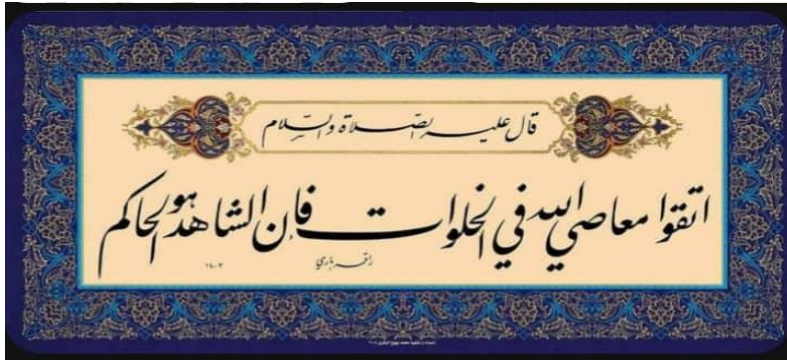 قال عليه الصّلاة والسّلام
اتقوا معاصي الله في الخلوات فإن الشاهد هو الحاكم